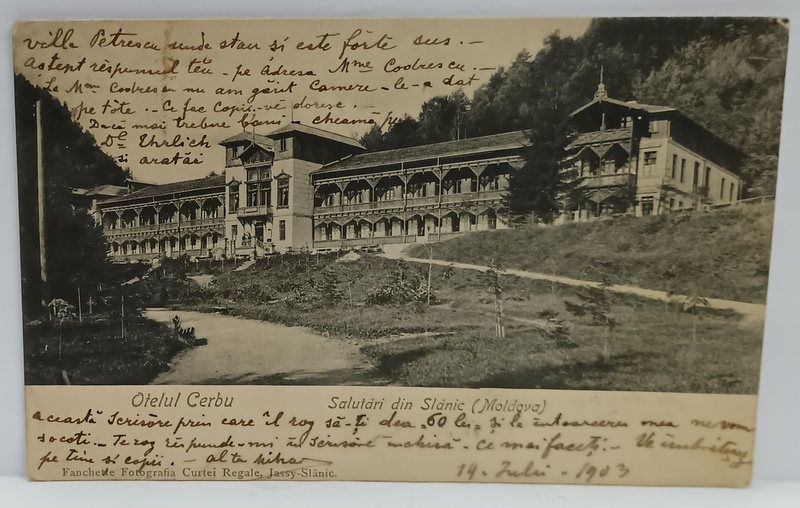 villa Petrescu unde stau si este fórte sus. —
astept respunsul tĕu — pe adresa Mme Codrescu. —
La Mme Codrescu nu am găsit Camere — le-a dat
pe tóte. — Ce fac Copii — vĕ doresc. —
Dacă mai trebue bani — cheamă pe
Dl Ehrlich
si aratăi
Otelul Cerbu
Salutări din Slănic (Moldova)
această scrisóre prin care îl rog să-ți dea 60 lei — și la întoarcerea mea ne vom
socoti. — Te rog rĕspunde-mi în scrisóre închisă. — Ce mai faceți. — Ve îmbrățișez
pe tine si copii. — al tĕu
Fanchette Fotografia Curtei Regale, Jassy-Slănic.
19 — Iulii — 1903